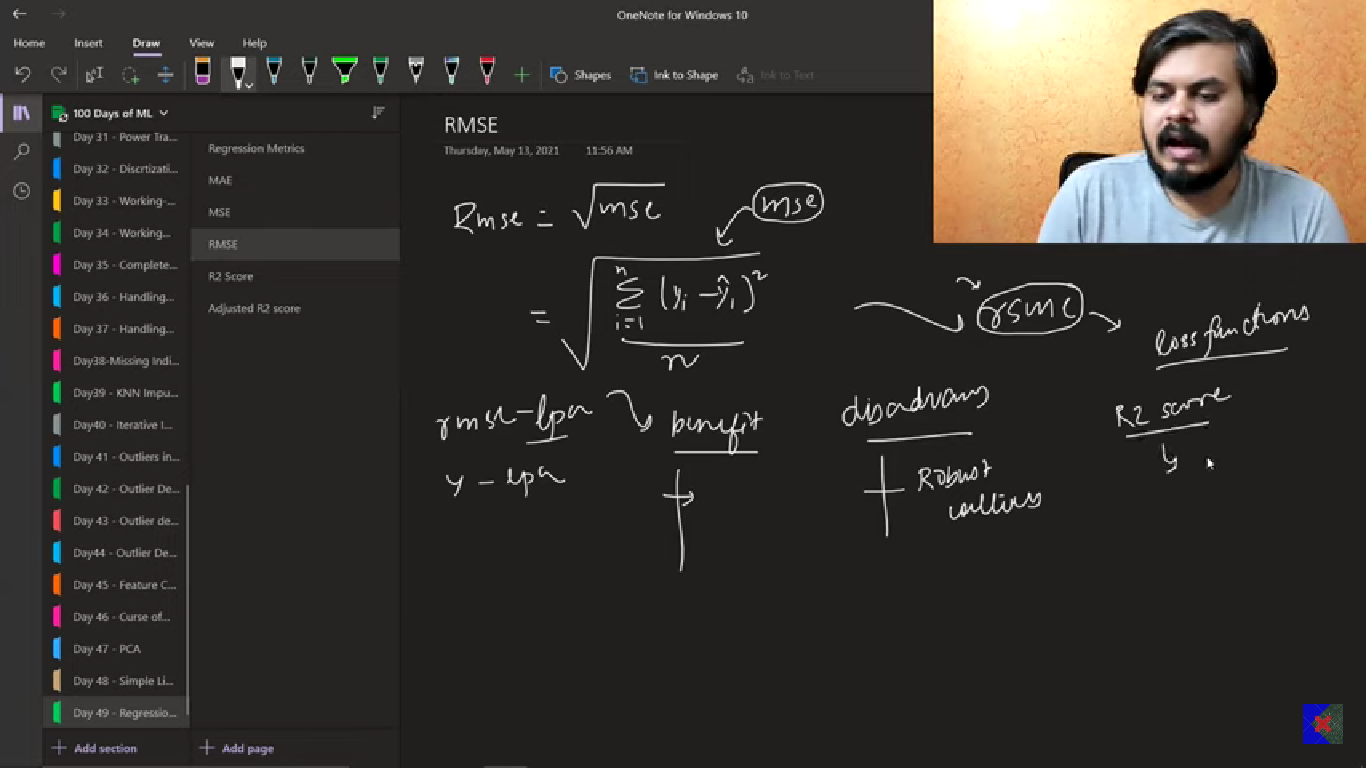 OneNote for Windows 10
Home Insert Draw View Help
Shapes Ink to Shape Ink to Text
100 Days of ML
Day 31 - Power Tra...
Day 32 - Discrtizati...
Day 33 - Working-...
Day 34 - Working...
Day 35 - Complete...
Day 36 - Handling...
Day 37 - Handling...
Day38-Missing Indi...
Day39 - KNN Impu...
Day40 - Iterative I...
Day 41 - Outliers in...
Day 42 - Outlier De...
Day 43 - Outlier de...
Day44 - Outlier De...
Day 45 - Feature C...
Day 46 - Curse of...
Day 47 - PCA
Day 48 - Simple Li...
Day 49 - Regressio...
Add section
Regression Metrics
MAE
MSE
RMSE
R2 Score
Adjusted R2 score
Add page
RMSE
Thursday, May 13, 2021 11:56 AM
Rmse = √mse mse
= √ n Σ i=1 (yi - ŷi)² / n
rsme
loss functions
rmse - lpa benefit disadvans R2 score
y - lpa
Robust